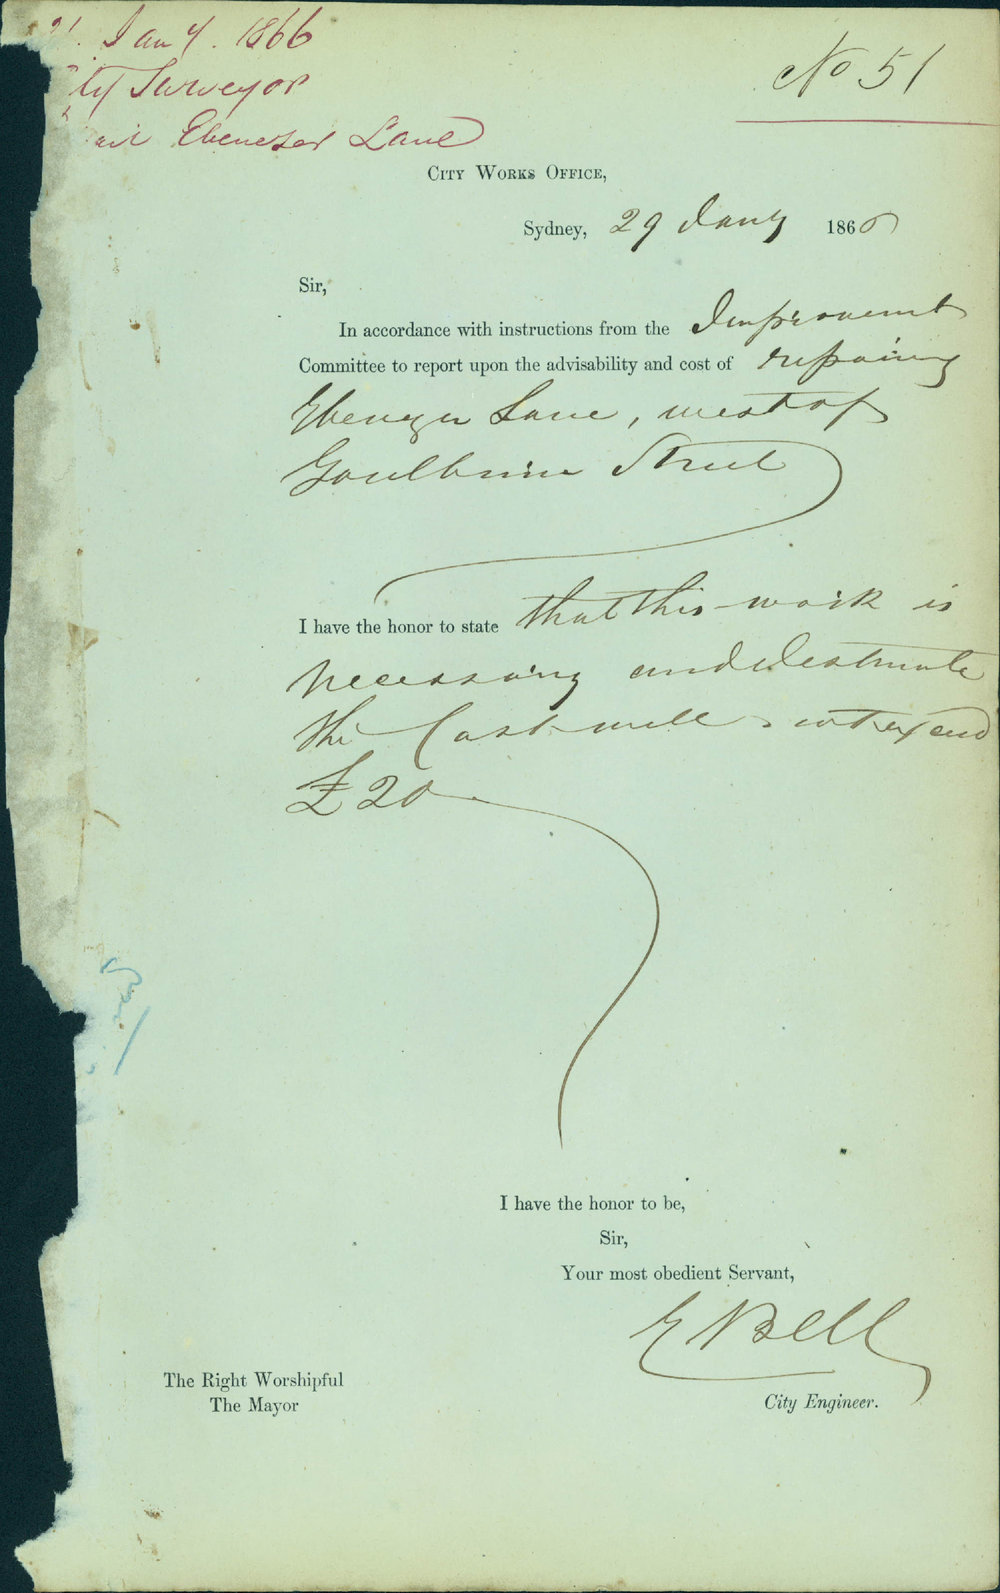 Jany. 1866
No 51
ty Surveyor
Ebenezer Lane
CITY WORKS OFFICE,
Sydney, 29 Jany 1866
Sir,
In accordance with instructions from the Improvement
Committee to report upon the advisability and cost of repairing
Ebenezer Lane, west of
Goulburn Street
I have the honor to state that this work is
necessary and I estimate
the Cost will not exceed
£20
I have the honor to be,
Sir,
Your most obedient Servant,
E Bell
The Right Worshipful
The Mayor
City Engineer.